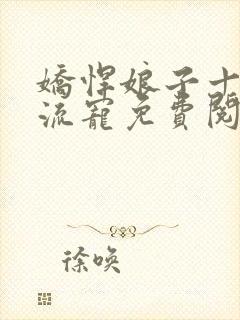 嬌悍娘子十
流寵免費閱
徐喚